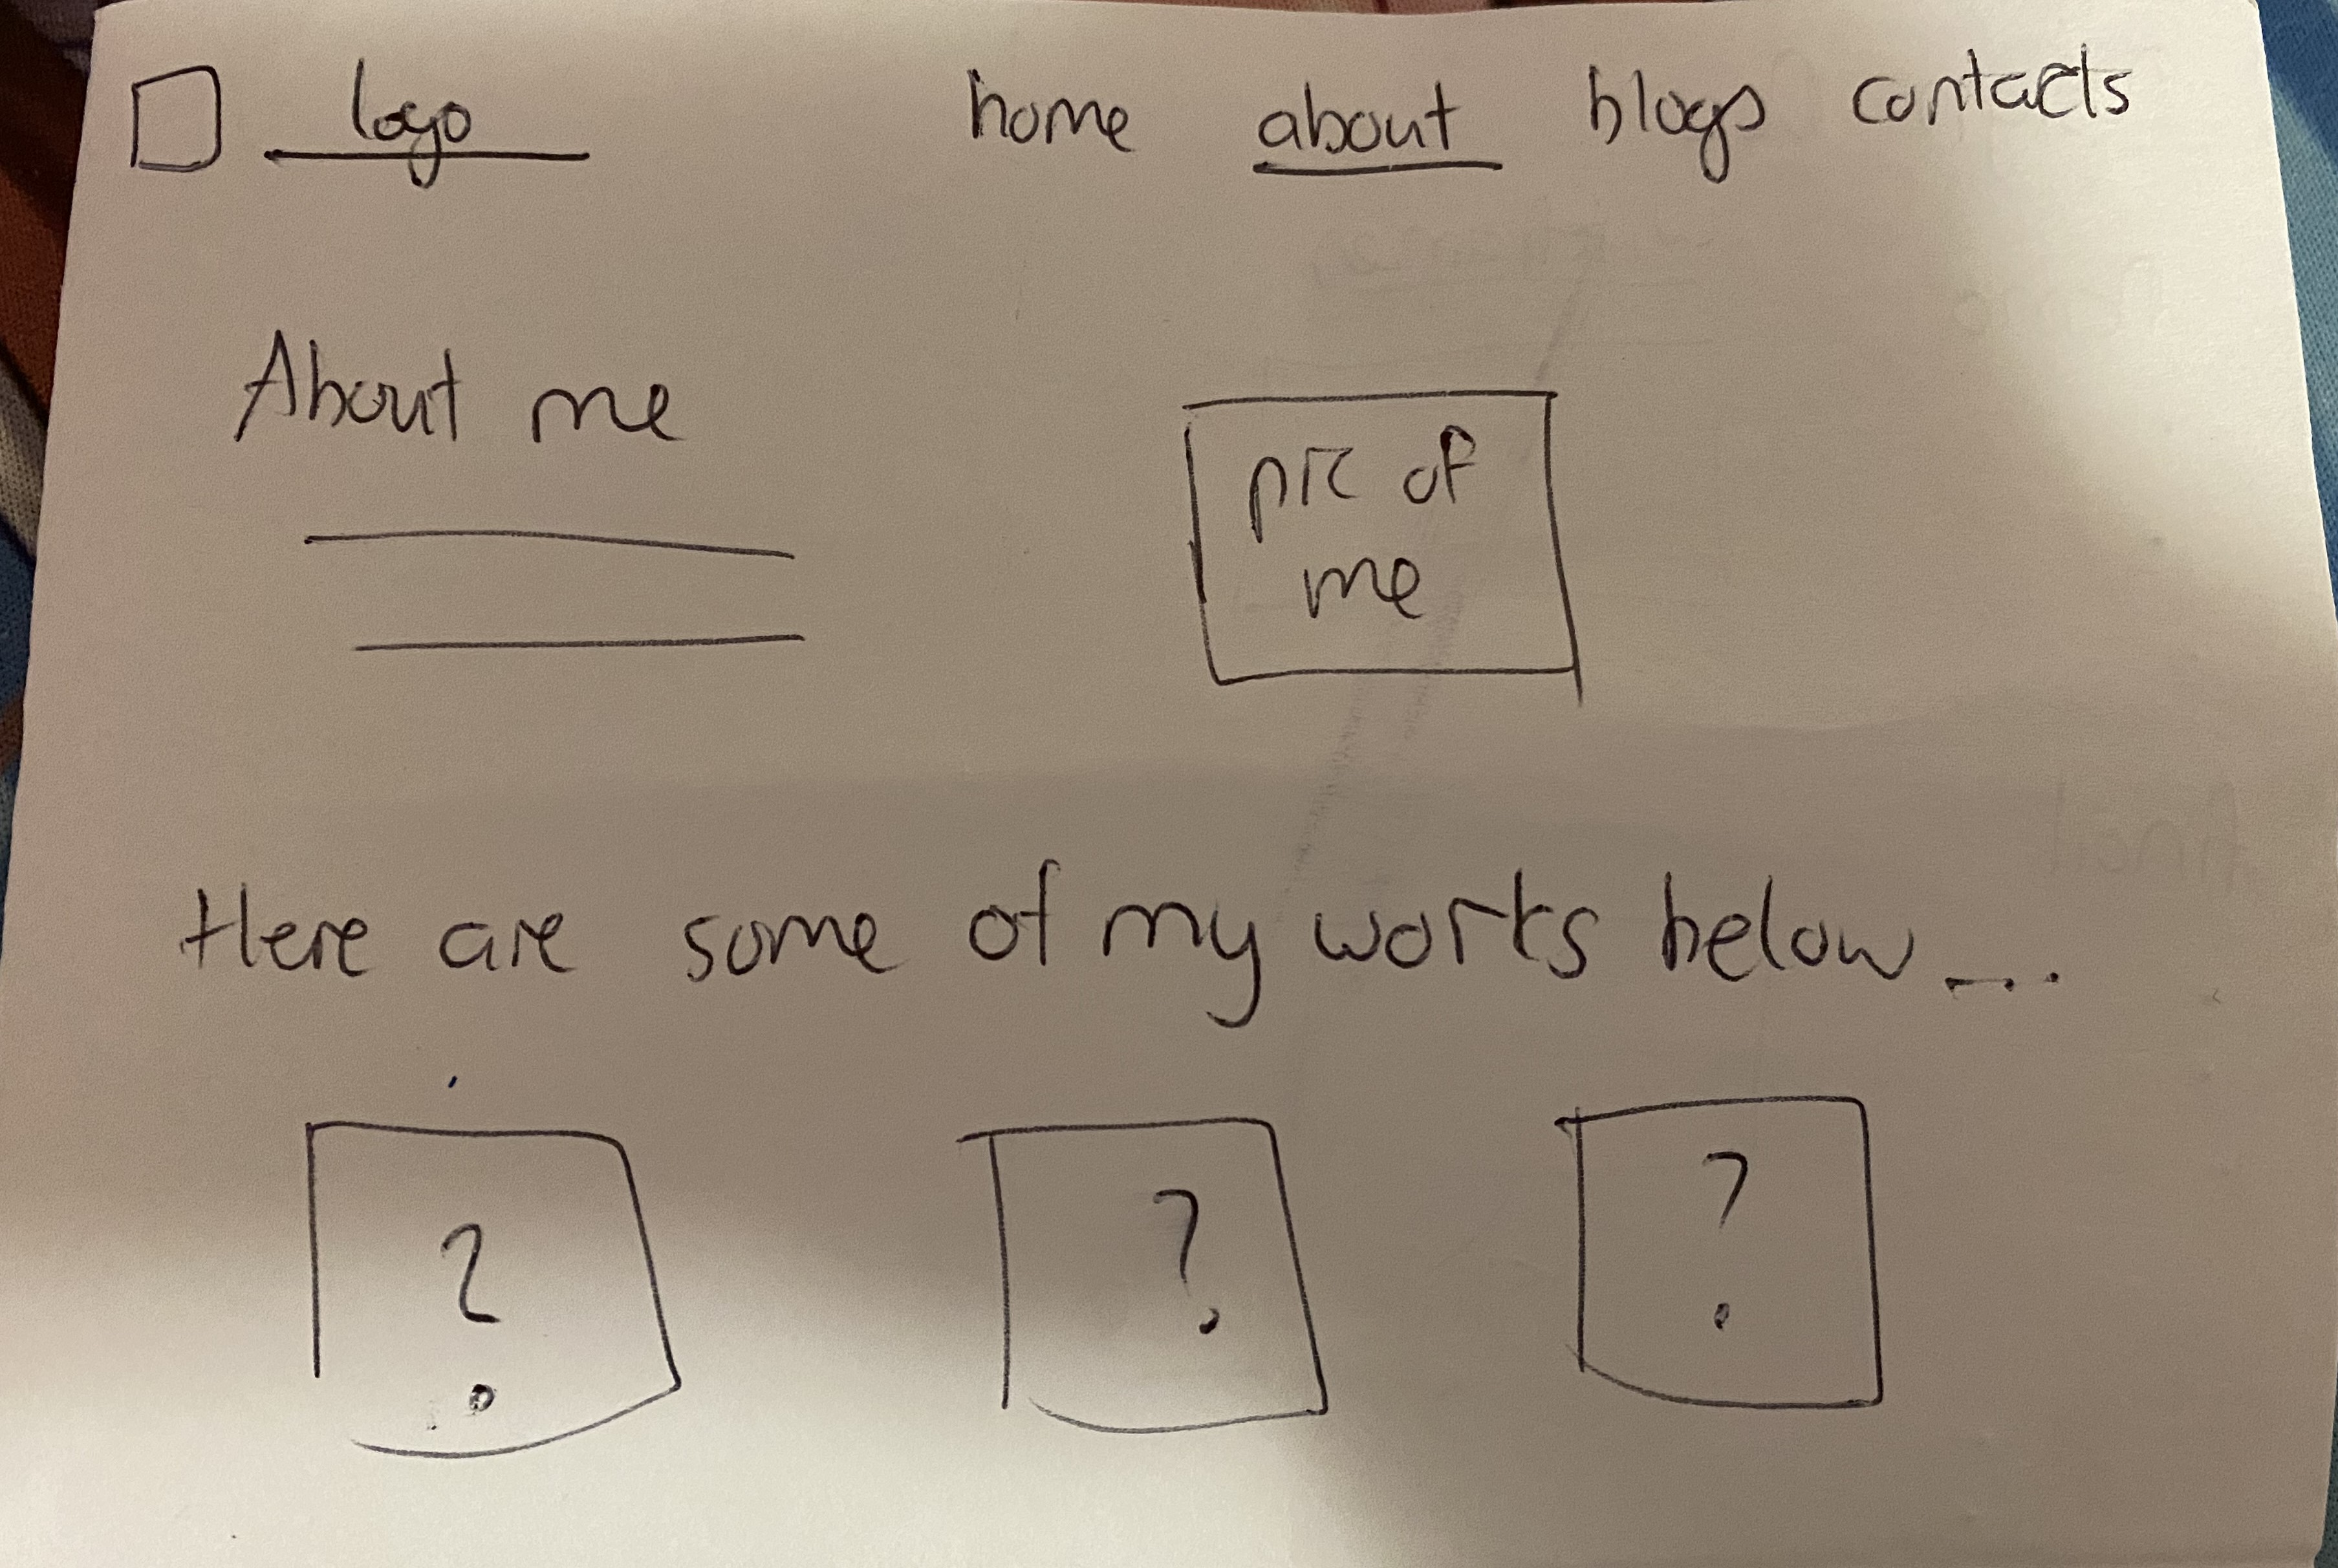 logo home about blogs contacts
About me
pic of
me
Here are some of my works below...
? ? ?